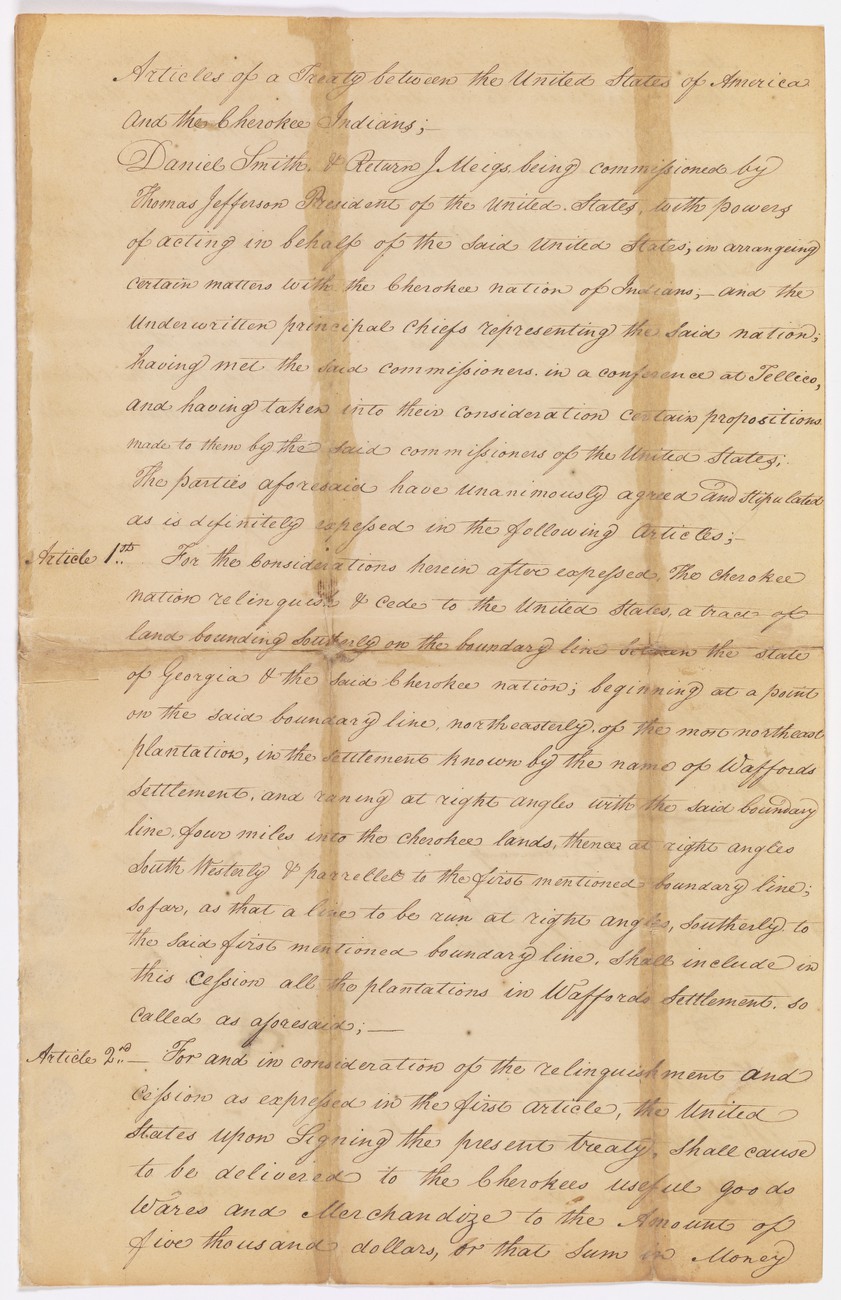 Articles of a Treaty between the United States of America
and the Cherokee Indians;—
Daniel Smith. & Return J Meigs being commissioned by
Thomas Jefferson President of the United States, with powers
of acting in behalf of the said United States; in arrangeing
certain matters with the Cherokee nation of Indians;— and the
Underwritten principal chiefs representing the said nation;
having met the said commissioners. in a conference at Tellico,
and having taken into their consideration certain propositions
made to them by the said commissioners of the United States;.
The parties aforesaid have unanimously agreed and stipulated
as is definitely expessed in the following articles;—
Article 1st.. For the Considerations herein after expessed, The cherokee
nation relinquish & cede to the United States, a tract of
land bounding southerly on the boundary line between the state
of Georgia & the said Cherokee nation; beginning at a point
on the said boundary line, northeasterly, of the most northeast
plantation, in the settlement known by the name of Waffords
settlement. and runing at right angles with the said boundary
line, four miles into the cherokee lands, thence at right angles
South Westerly & parrellet to the first mentioned boundary line;
so far, as that a line to be run at right angles, southerly to
the said first mentioned boundary line. shall include in
this cession all the plantations in Waffords settlement. so
called as aforesaid;—
Article 2nd..— For and in consideration of the relinquishment and
Cession as expressed in the first article, the United
States upon Signing the present treaty, shall cause
to be delivered to the Cherokees useful goods
Wares and Merchandize to the Amount of
five thousand dollars, or that sum in Money